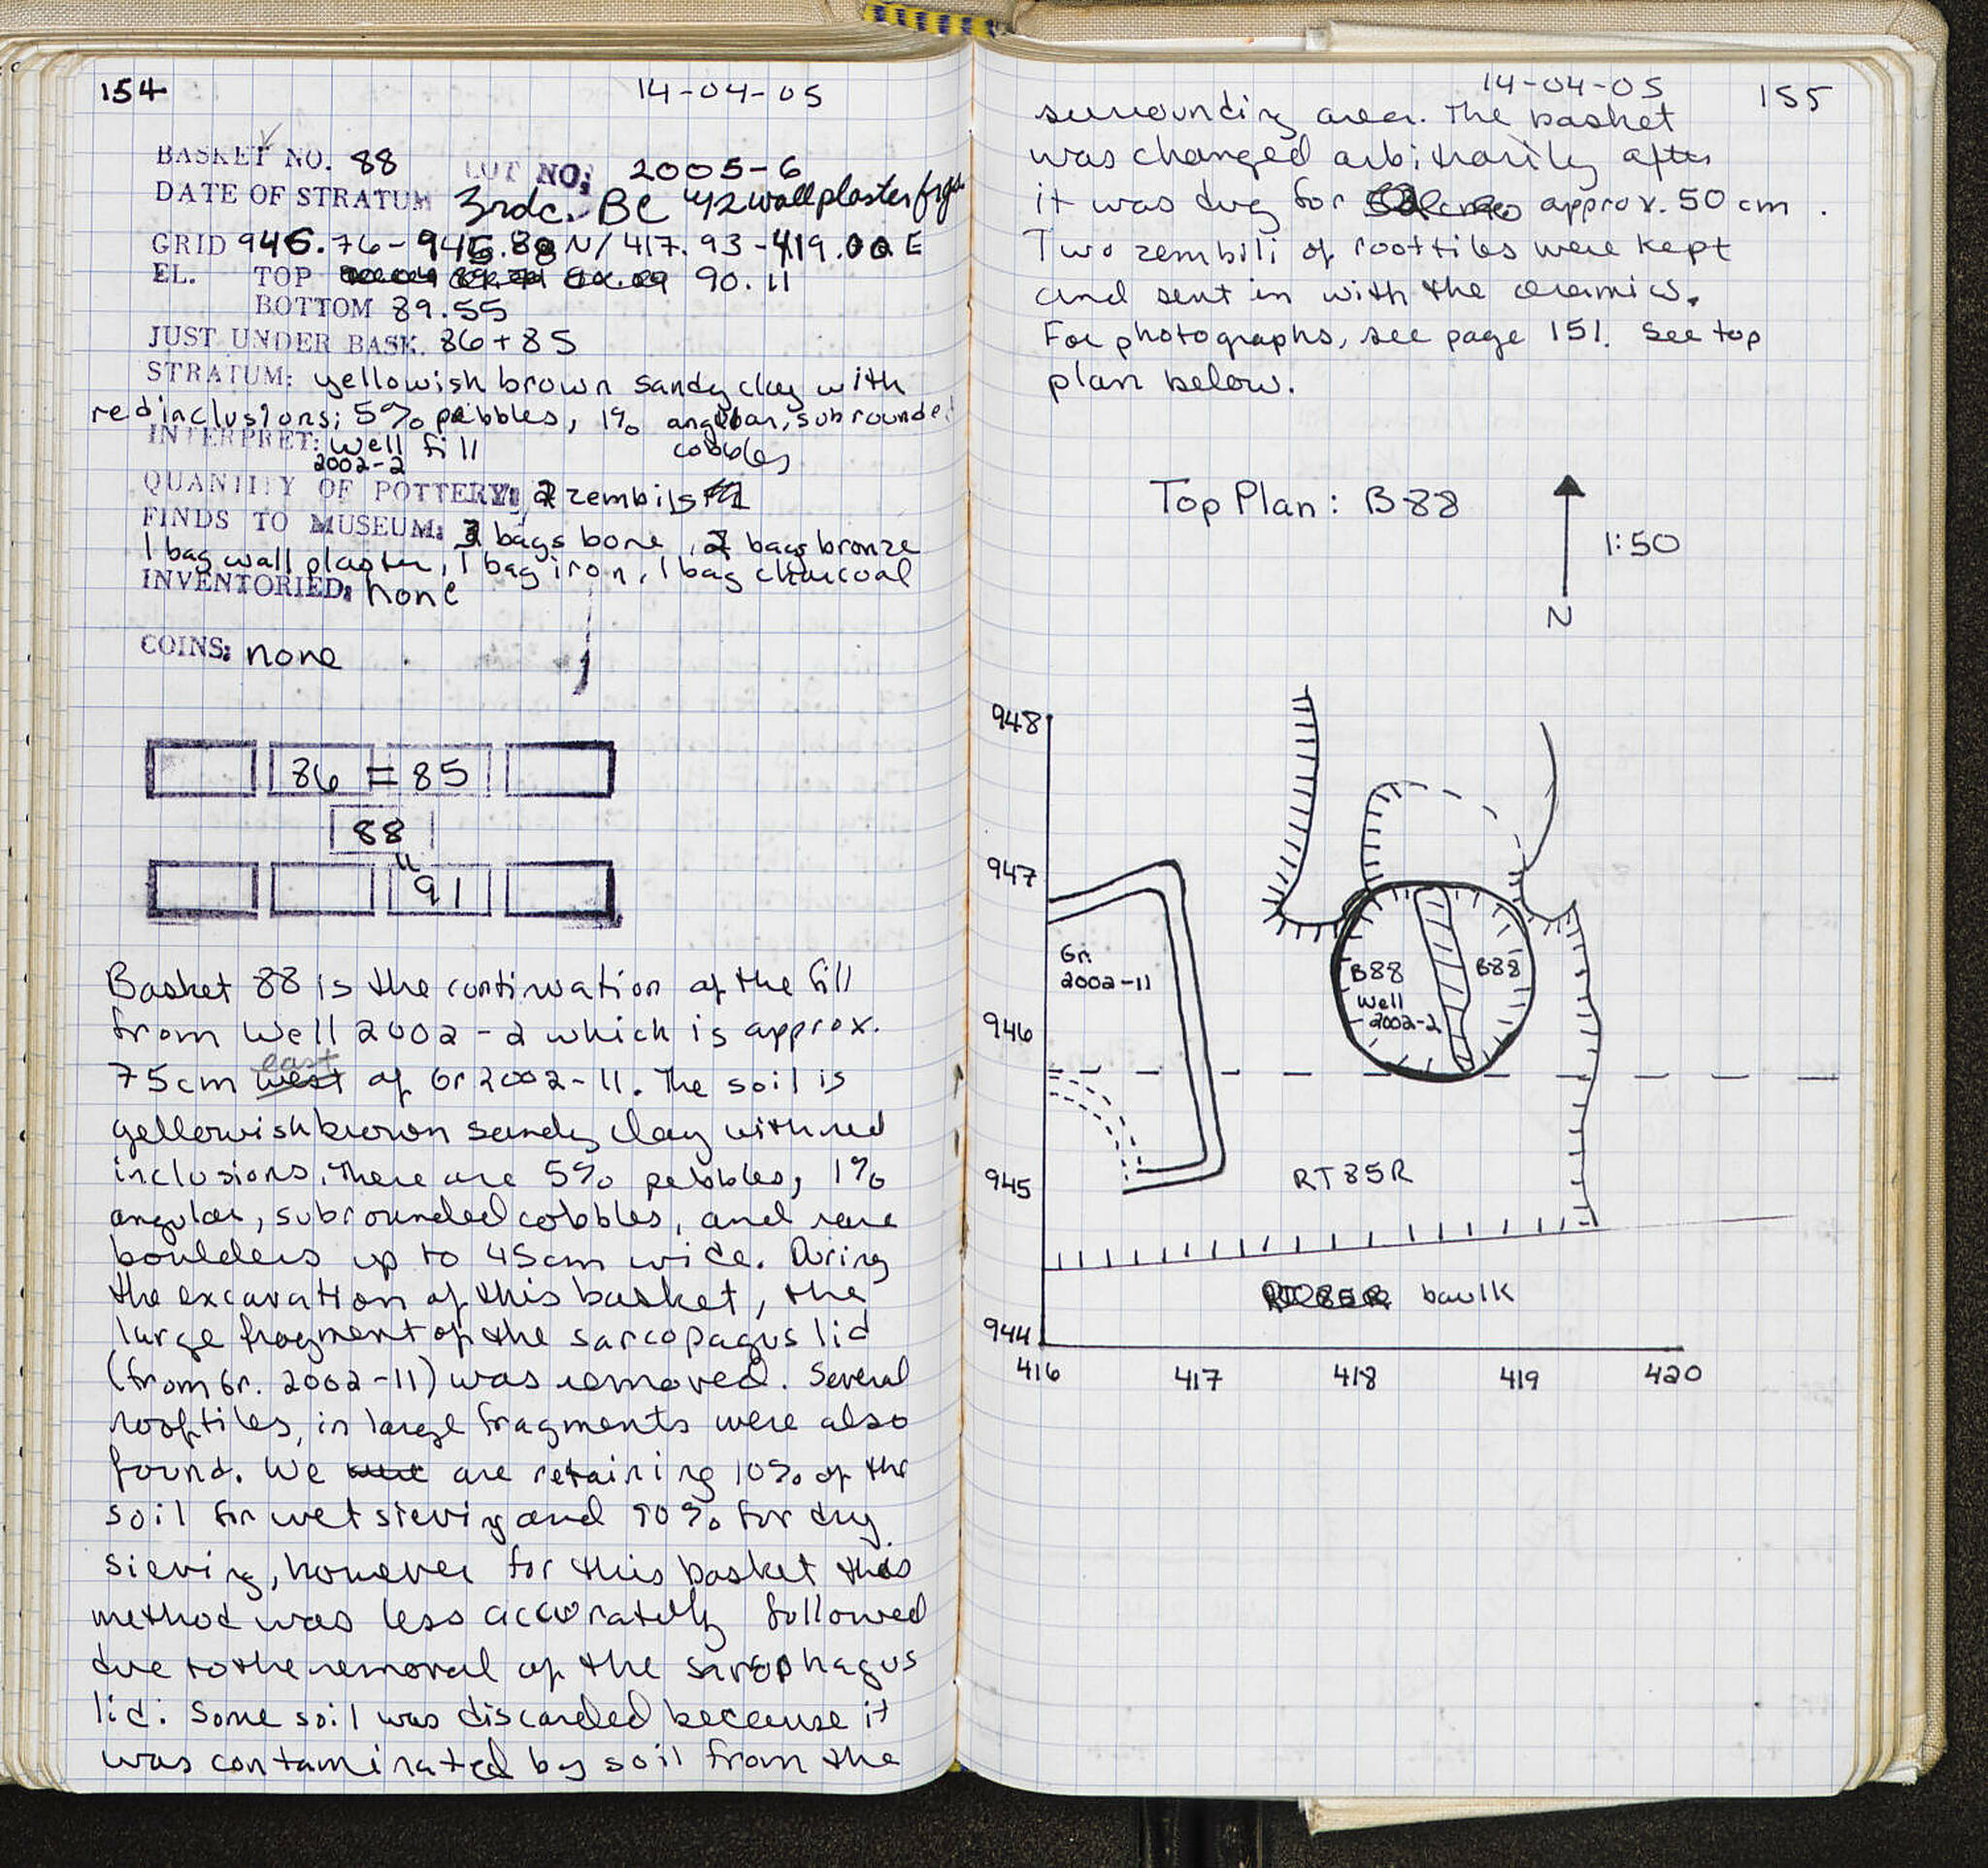 154
14-04-05
BASKET NO. 88 LOT NO: 2005-6
DATE OF STRATUM 3rd c. BC 42 wall plaster frgs
GRID 945.76-946.88 N/417.93-419.00 E
EL. TOP 90.11
BOTTOM 89.55
JUST UNDER BASK. 86+85
STRATUM: yellowish brown sandy clay with
red inclusions; 5% pebbles, 1% angular, subrounded
cobbles
INTERPRET: well fill
2002-2
QUANTITY OF POTTERY: 2 zembils
FINDS TO MUSEUM: 3 bags bone, 2 bags bronze
1 bag wall plaster, 1 bag iron, 1 bag charcoal
INVENTORIED: none
COINS: none
86 = 85
88
"
91
Basket 88 is the continuation of the fill
from Well 2002-2 which is approx.
75cm west east of Gr 2002-11. The soil is
yellowish brown sandy clay with red
inclusions. There are 5% pebbles, 1%
angular, subrounded cobbles, and rare
boulders up to 45cm wide. During
the excavation of this basket, the
large fragment of the sarcopagus lid
(from Gr. 2002-11) was removed. Several
rooftiles, in large fragments were also
found. We are retaining 10% of the
soil for wet sieving and 90% for dry
sieving, however for this basket this
method was less accurately followed
due to the removal of the sarcophagus
lid. Some soil was discarded because it
was contaminated by soil from the
14-04-05
155
surrounding area. The basket
was changed arbitrarily after
it was dug for approx. 50 cm.
Two zembili of rooftiles were kept
and sent in with the ceramics.
For photographs, see page 151. See top
plan below.
Top Plan: B88
1:50
N
948
947
946
945
944
416
417
418
419
420
Gr.
2002-11
B88
Well
2002-2
B88
RT85R
baulk